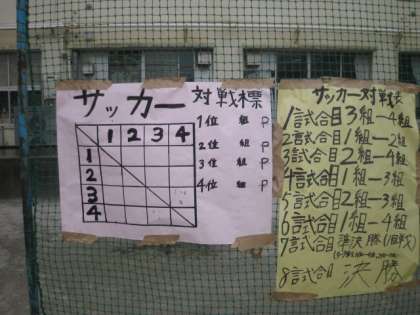 サッカー対戦標
1 2 3 4
1
2
3
4
1位 組 P
2位 組 P
3位 組 P
4位 組 P
サッカー対戦表
1試合目3組ー4組
2試合目1組ー2組
3試合目2組ー4組
4試合目1組ー3組
5試合目2組ー3組
6試合目1組ー4組
7試合目準決勝
8試合目決勝